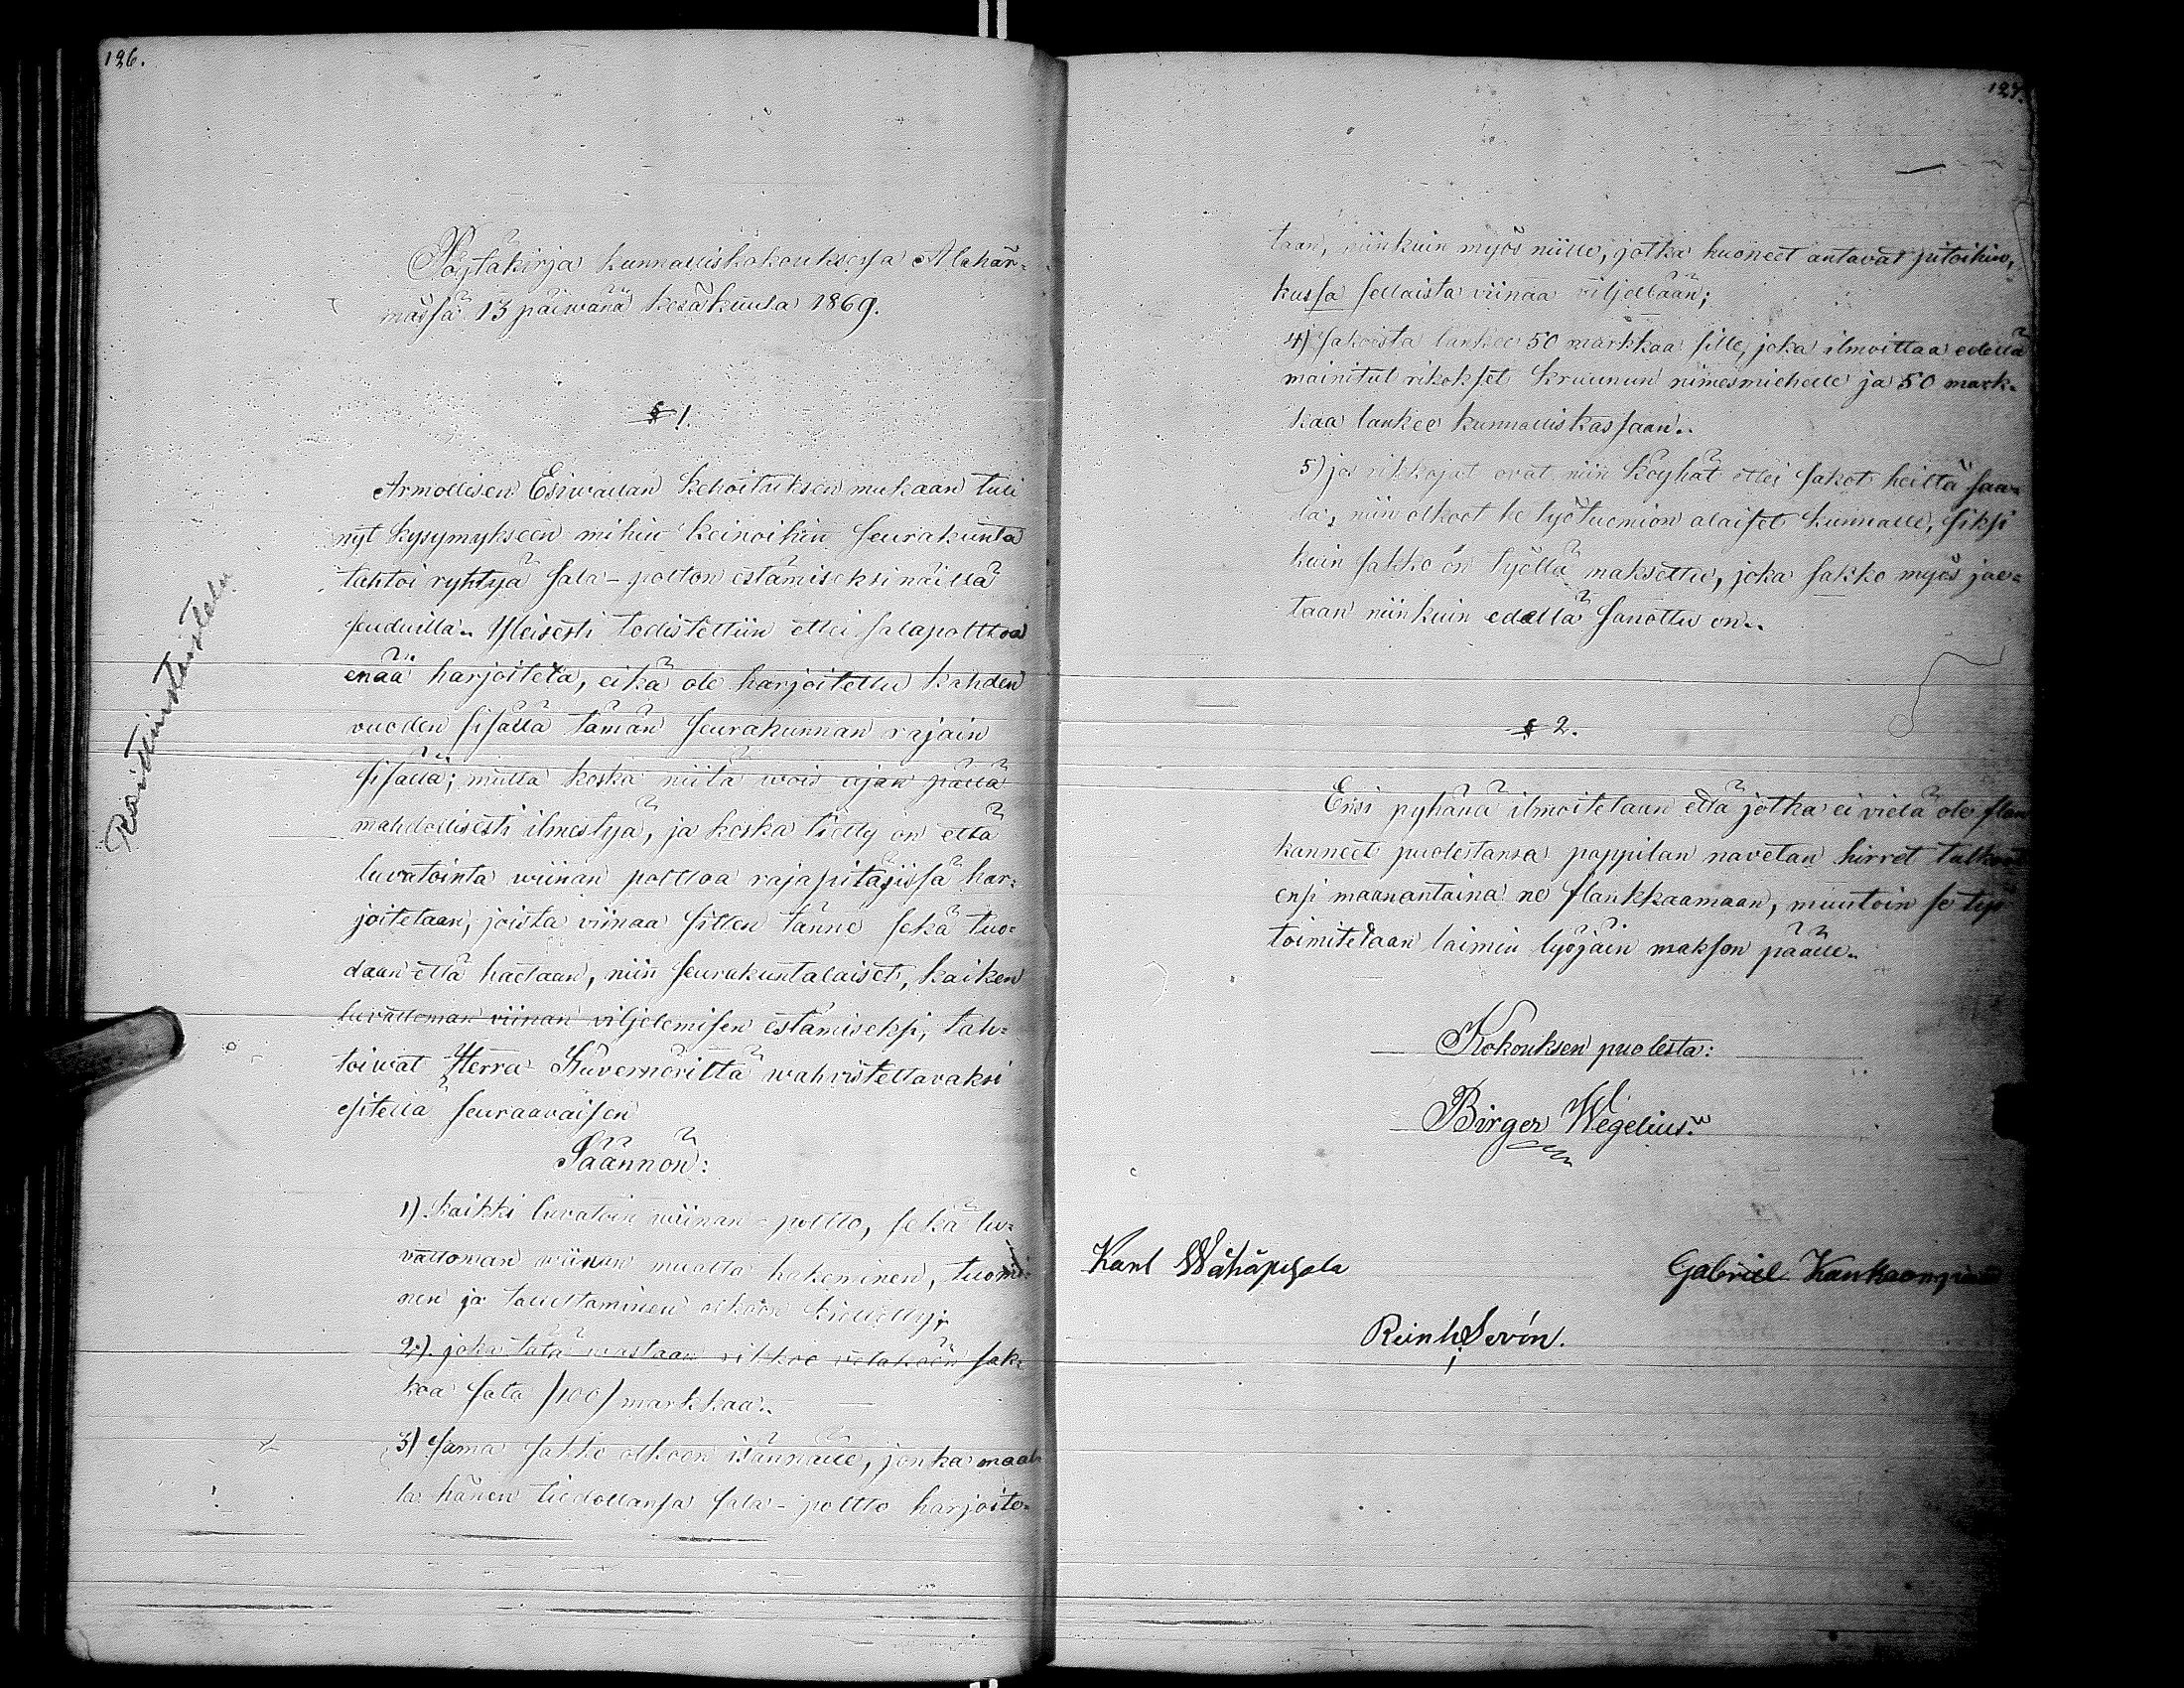 126.
Pöytäkirja kunnalliskokouksessa Alahär-
mässä 13 päiwänä kesäkuuta 1869.
§ 1.
Raittiustaistelu
Armollisen Esiwallan kehoituksen mukaan tuli
nyt kysymykseen mihin keinoihin seurakunta
tahtoi ryhtyä sala-polton estämiseksi näillä
seuduilla. Yleisesti todistettiin ettei salapolttoa
enää harjoiteta, eikä ole harjoitettu kahden
vuoden sisällä tämän seurakunnan rajain
sisällä; mutta koska niitä wois ajan päällä
mahdollisesti ilmestyä, ja koska tietty on että
luvatointa wiinan polttoa rajapitäjissä har-
joitetaan, joista viinaa sitten tänne sekä tuo-
daan että haetaan, niin seurakuntalaiset, kaiken
luvattoman viinan viljelemisen estämiseksi, tah-
toiwat Herra Kuvernöriltä wahvistettavaksi
esitellä seuraavaisen
Säännön:
1) Kaikki luvatoin wiinan-poltto, sekä lu-
vattoman wiinan mualta hakeminen, tuomi-
nen ja taulettaminen olkoon kielletty;
2) joka tätä wastaan rikkoo vetäköön sak-
koa sata /100/ markkaa.
3) Sama sakko olkoon isännälle, jonka maal-
la hänen tiedollansa sala-poltto harjoite-
127.
taan, niinkuin myös niille, jotka huoneet antavat pitoihin,
kussa sellaista viinaa viljellään;
4) sakoista lankee 50 markkaa sille, joka ilmoittaa edellä
mainitut rikokset kruunun nimesmiehelle ja 50 mark-
kaa lankee kunnalliskassaan.
5) jos rikkojat ovat niin köyhät ettei sakot heiltä saa-
da, niin olkoot he työtuomion alaiset kunnalle, siksi
kuin sakko on työllä maksettu, joka sakko myös jae-
taan niinkuin edellä sanottu on.
§ 2.
Ensi pyhänä ilmoitetaan että jotka ei vielä ole slan
kanneet puolestansa pappilan navetan hirret tulkoot
ensi maanantaina ne slankkaamaan, muutoin se työ
toimitetaan laimin lyöjäin makson päälle.
Kokouksen puolesta:
Birger Wegelius.
Karl Wähäpesola
Gabriel
Reinh. Sevón.